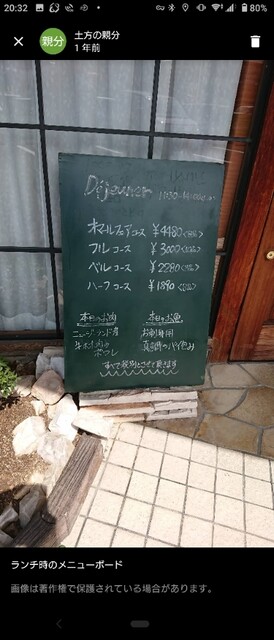 20:32
80%
親分
土方の親分
1 年前
Déjeuner
オマールブルアコース ￥4480
フルコース ￥3000
ベルコース ￥2280
ハーフコース ￥1890
本日のお肉
本日のお魚
ニュージーランド産
牛ホホ肉の
お刺身用
真鯛のパイ包み
すべて税別とさせて頂きます
ランチ時のメニューボード
画像は著作権で保護されている場合があります。